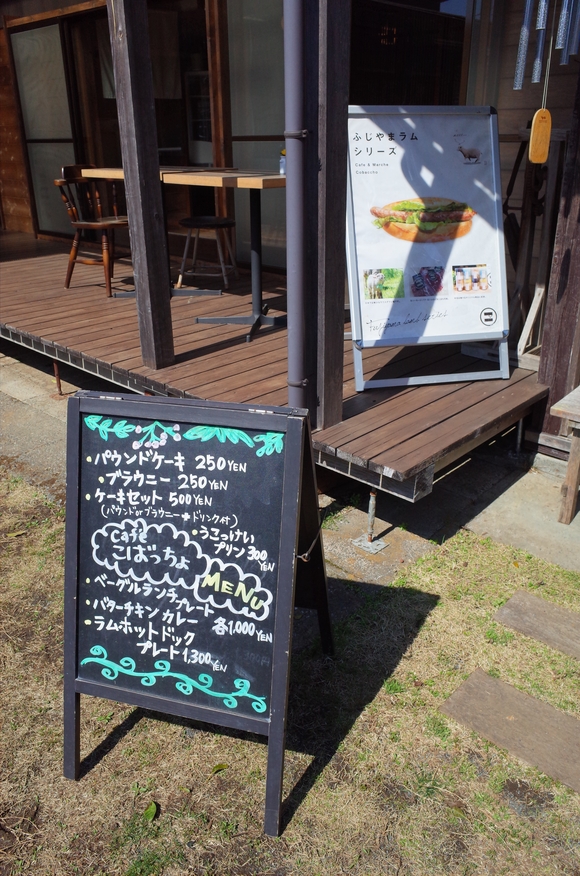 ふじやまラム
シリーズ
Cafe & Marche
Cobaccho
・パウンドケーキ 250YEN
・ブラウニー 250YEN
・ケーキセット 500YEN
(パウンドorブラウニー+ドリンク付)
・うこっけい
プリン 300YEN
Café
こばっちょ
MENU
・ベーグルランチプレート
・バターチキンカレー 各1,000YEN
・ラムホットドック
プレート 1,300YEN